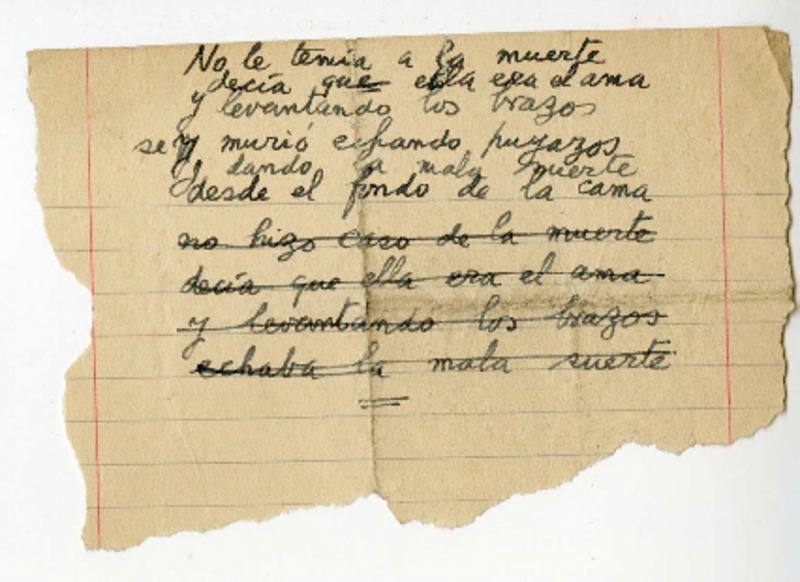 No le temía a la muerte
decía que ella era el ama
y levantando los brazos
se y murió echando puyazos
y dando la mala suerte
desde el fondo de la cama
no hizo caso de la muerte
decía que ella era el ama
y levantando los brazos
echaba la mala suerte